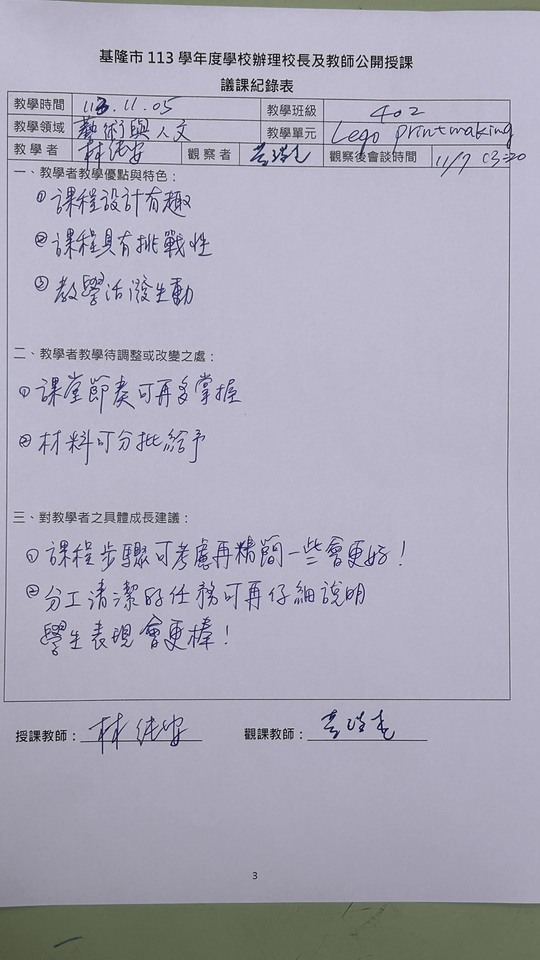 基隆市 113 學年度學校辦理校長及教師公開授課
議課紀錄表
教學時間 113.11.05 教學班級 402
教學領域 藝術與人文 教學單元 Lego printmaking
教學者 林純安 觀察者 觀察後會談時間 11/7 13:20
一、教學者教學優點與特色：
① 課程設計有趣
② 課程具有挑戰性
③ 教學活潑生動
二、教學者教學待調整或改變之處：
① 課堂節奏可再多掌握
② 材料可分批給予
三、對教學者之具體成長建議：
① 課程步驟可考慮再精簡一些會更好！
② 分工清潔的任務可再仔細說明
學生表現會更棒！
授課教師：林純安 觀課教師：
3